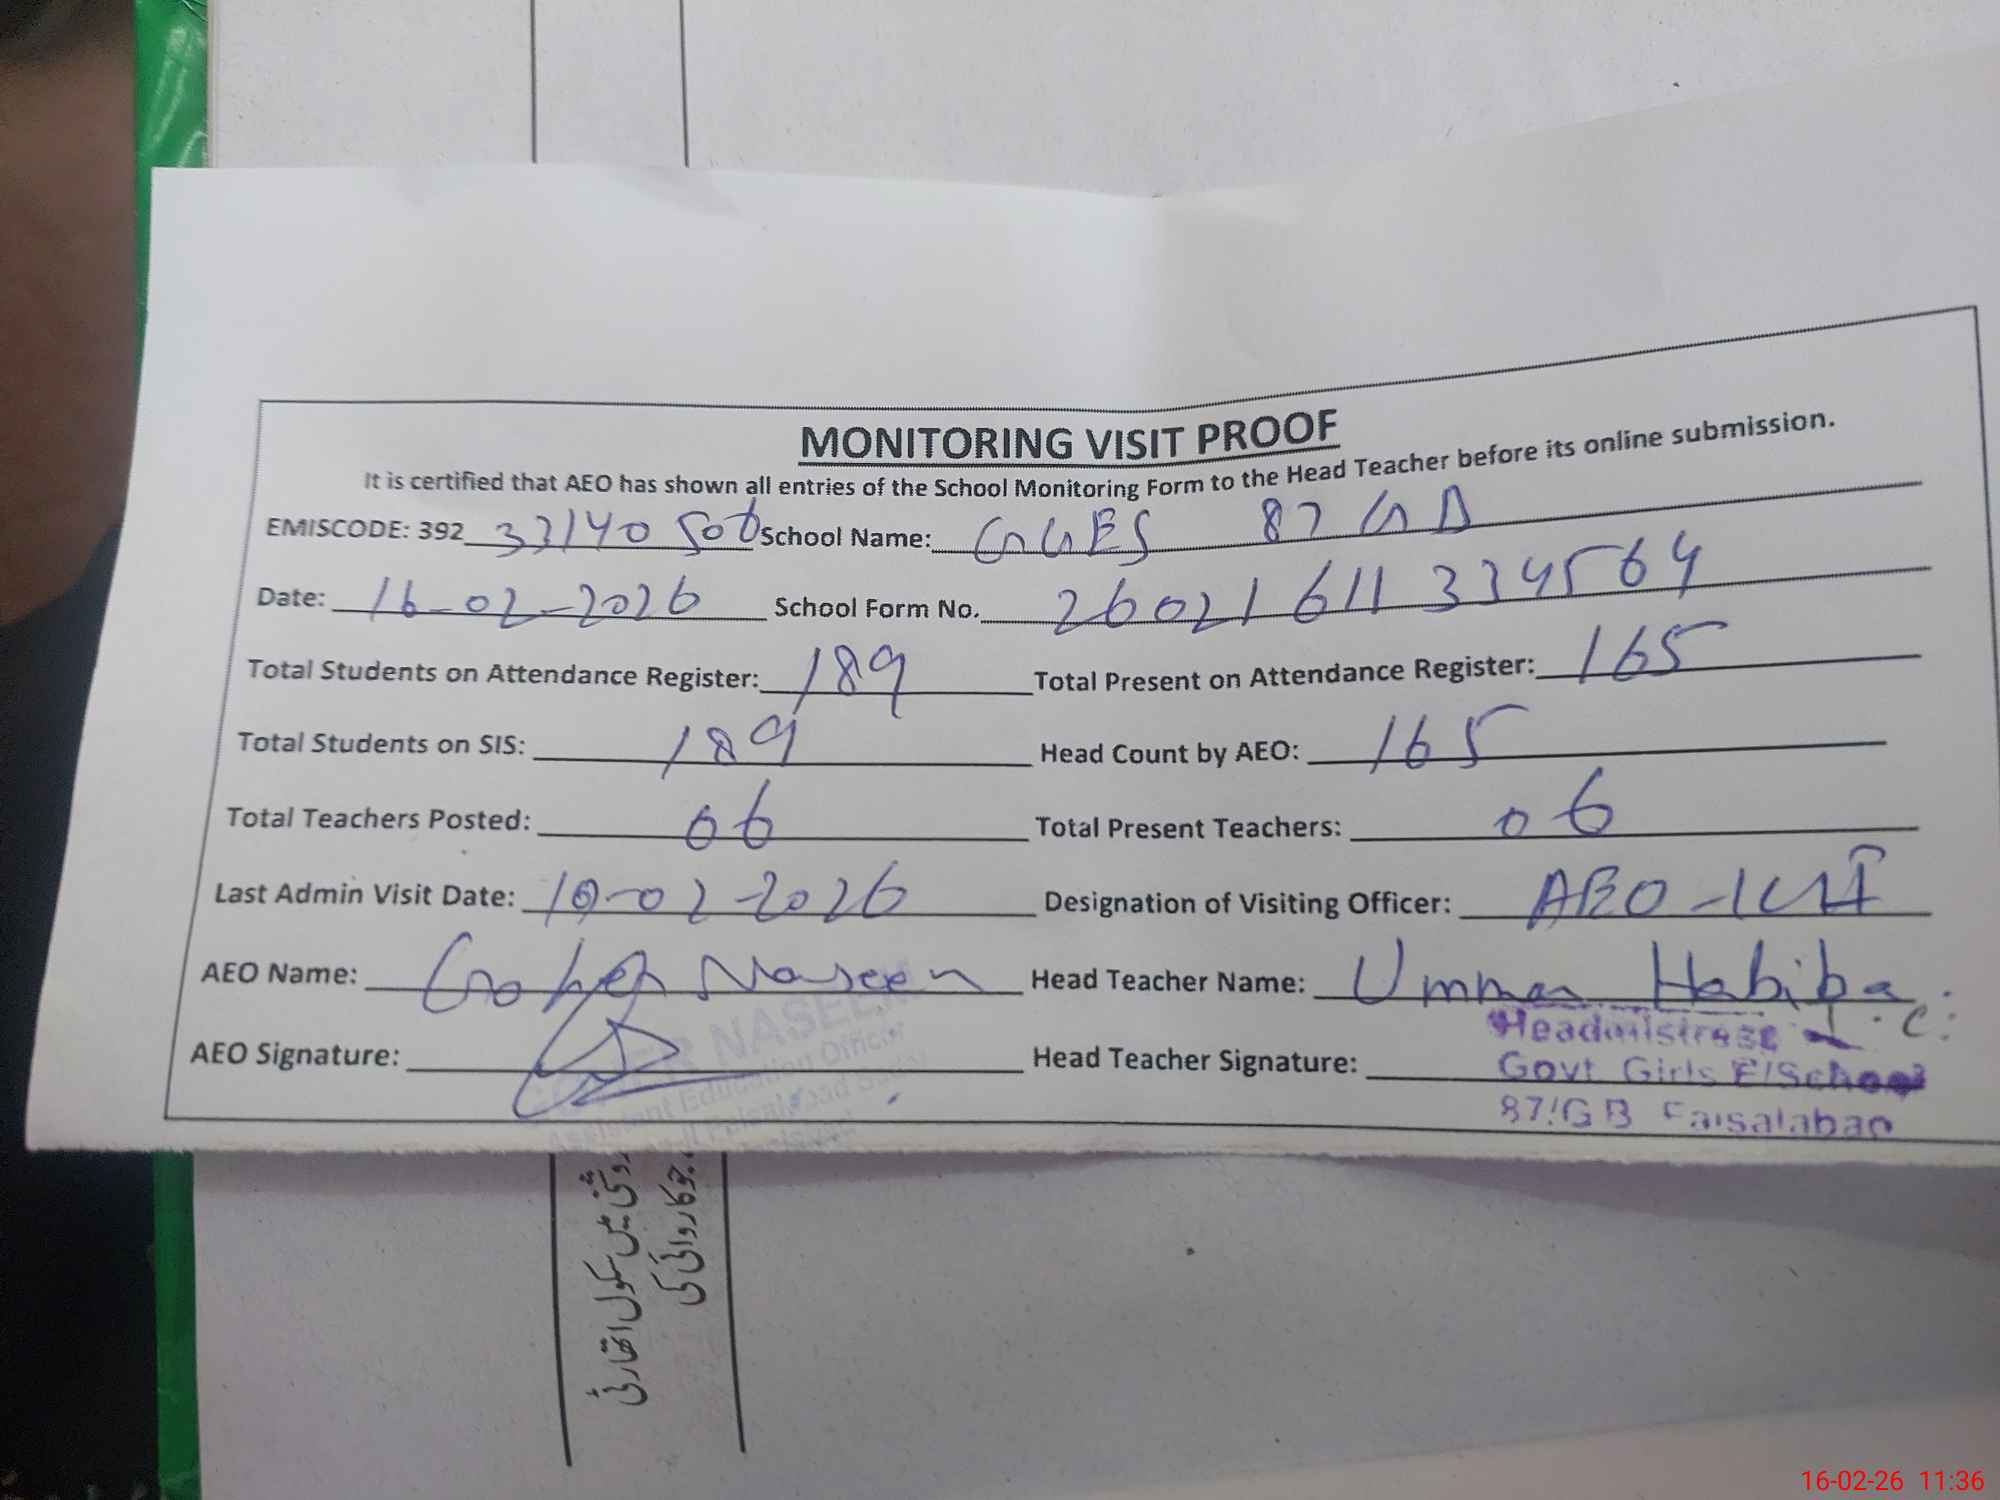 MONITORING VISIT PROOF
It is certified that AEO has shown all entries of the School Monitoring Form to the Head Teacher before its online submission.
EMISCODE: 392 33140 506 School Name: GGES 87 GB
Date: 16-02-2026 School Form No. 260216113334564
Total Students on Attendance Register: 189 Total Present on Attendance Register: 165
Total Students on SIS: 189 Head Count by AEO: 165
Total Teachers Posted: 06 Total Present Teachers: 06
Last Admin Visit Date: 10-02-2026 Designation of Visiting Officer: AEO
AEO Name: Goher Naseem Head Teacher Name: Umma Habiba
Headmistress
AEO Signature: Head Teacher Signature: Govt Girls E/School
87/GB Faisalabad
NASEEM
Assistant Education Officer
روشنی میں سکول اتھارٹی
جو کاروائی کی
16-02-26 11:36